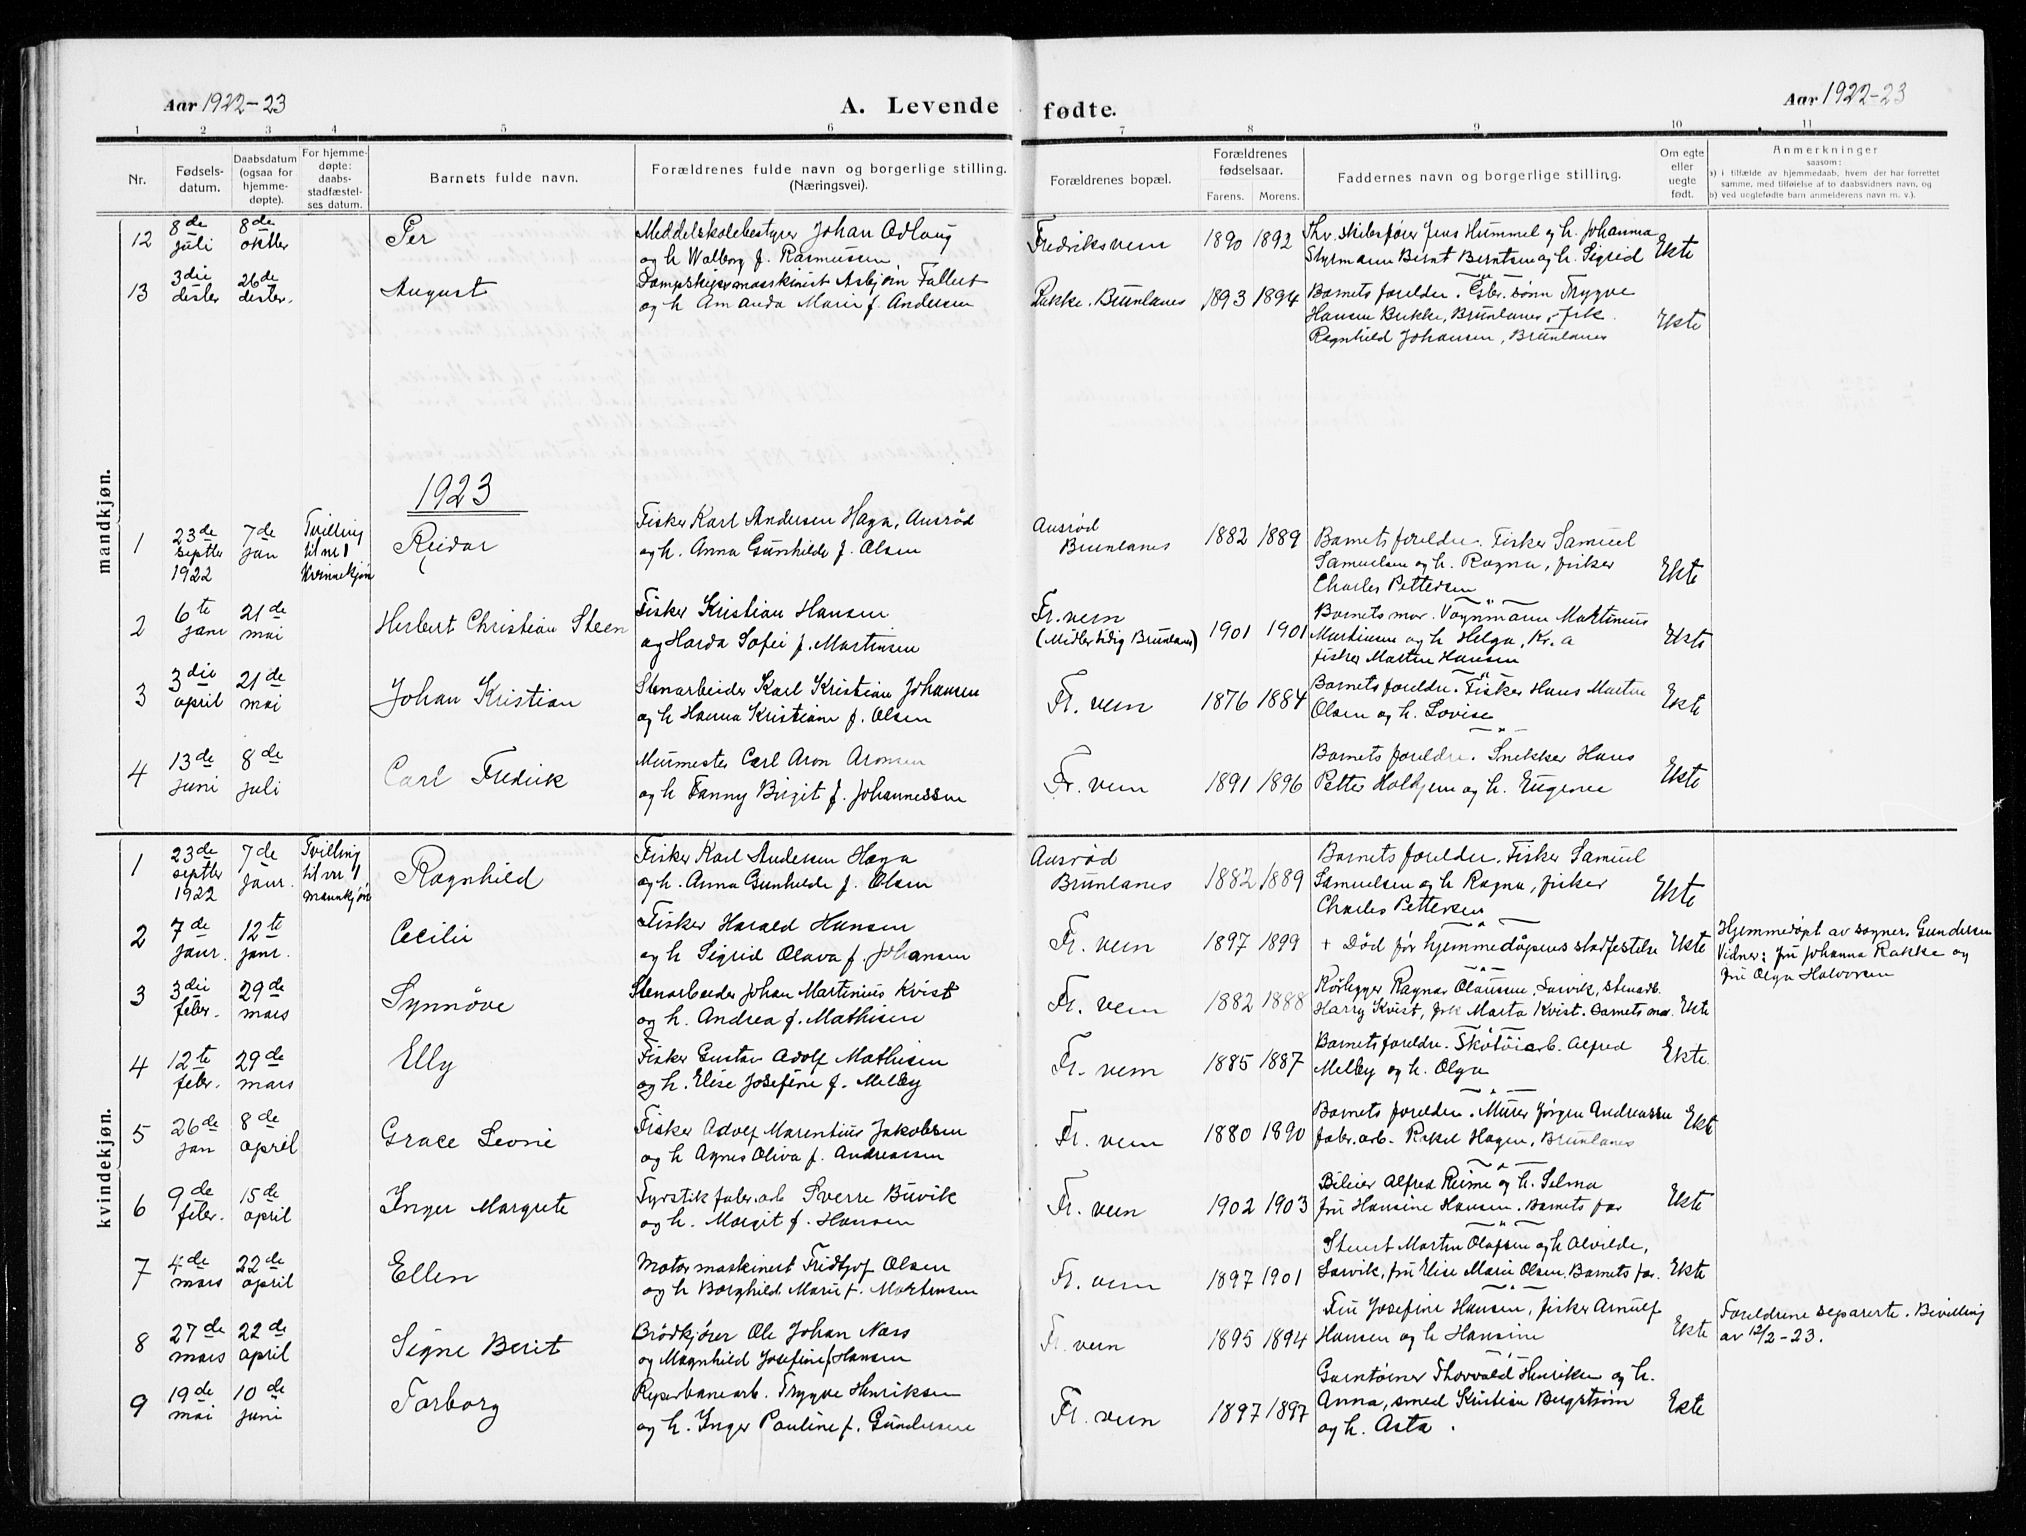 Aar 1922-23
A. Levende fødte.
Aar 1922-23
1 2 3 4 5 6 7 8 9 10 11
Nr.
Fødsels-
datum.
Daabsdatum
(ogsaa for
hjemme-
døpte).
For hjemme-
døpte:
daabs-
stadfæstel-
ses datum.
Barnets fulde navn.
Forældrenes fulde navn og borgerlige stilling.
(Næringsvei).
Forældrenes bopæl.
Forældrenes
fødselsaar.
Farens. Morens.
Faddernes navn og borgerlige stilling.
Om egte
eller
uegte
født.
Anmerkninger
saasom:
a) i tilfælde av hjemmedaab, hvem der har forrettet
samme, med tilføielse af to daabsvidners navn, og
b) ved uegtefødte barn anmelderens navn m. v.).
mandkjøn.
12
8de
juli
8de
oktbr
Per
Meddelskolebestyrer Johan Odlaug
og h Walborg f. Rasmussen
Fredriksvern
1890 1892
Hv. skibsfører Jens Hummel og h. Johanna
Styrmann Bernt Berntsen og h. Sigrid
Ekte
13
3die
desbr
26de
desbr.
August
Dampskipsmasskinist Asbjørn Fallert
og h Amanda Marie f. Andersen
Rakke. Brunlanes
1893 1894
Barnets foreldre. Gbr. sønn Trygve
Hansen Bukke, Brunlanes, frk.
Ragnhild Johansen, Brunlanes
Ekte
1923
1
23de
septbr
1922
7de
jan
Tvilling
til nr 1
Kvinnekjøn
Reidar
Fisker Karl Andersen Haga, Ausrød
og h. Anna Gunhilde f. Olsen
Ausrød
Brunlanes
1882 1889
Barnets foreldre. Fisker Samuel
Samuelsen og h. Ragna, fisker
Charles Pettersen
Ekte
2
6te
janr
21de
mai
Herbert Christian Steen
Fisker Kristian Hansen
og Harda Sofie f. Martinsen
Fr. vern
(Midlertidig Brunlanes)
1901 1901
Barnets mor. Vognmann Martinius
Martinsen og h Helga, Kr. a
fisker Martin Hansen
Ekte
3
3die
april
21de
mai
Johan Kristian
Stenarbeider Karl Kristian Johansen
og h Hanna Kristiane f. Olsen
Fr. vern
1876 1884
Barnets foreldre. Fisker Hans Martin
Olsen og h. Lovise
Ekte
4
13de
juni
8de
juli
Carl Fredrik
Murmester Carl Aron Aronsen
og h Fanny Birgit f. Johannessen
Fr. vern
1891 1896
Barnets foreldre. Snekker Hans
Petter Holtgem og h. Eugenie
Ekte
kvindekjøn.
1
23de
septbr
1922
7de
janr.
Tvilling
til nr 1
Mannkjøn
Ragnhild
Fisker Karl Andersen Haga
og h. Anna Gunhilde f. Olsen
Ausrød
Brunlanes
1882 1889
Barnets foreldre. Fisker Samuel
Samuelsen og h Ragna, fisker
Charles Pettersen
Ekte
2
7de
janr.
12te
janr.
Cecilie
Fisker Harald Hansen
og h. Sigrid Olava f. Johansen
Fr. vern
1897 1899
+ Død før hjemmedåpens stadfestelse
Ekte
Hjemmedøpt av sogner. Gundersen
Vidner: fru Johanna Rakke og
fru Olga Halvorsen
3
3die
febr.
29de
mars
Synnøve
Stenarbeider Johan Martinius Kvist
og h. Andrea f. Mathisen
Fr. vern
1882 1888
Rørlegger Ragnar Olaussen, Larvik, stenarb.
Harry Kvist, frk Marta Kvist. Barnets mor.
Ekte
4
12te
febr.
29de
mars
Elly
Fisker Gustav Adolf Mathisen
og h. Elise Josefine f. Melby
Fr. vern
1885 1887
Barnets foreldre. Skotøiarb. Alfred
Melby og h. Olga
Ekte
5
26de
jan
8de
april
Grace Leonie
Fisker Adolf Marentius Jakobsen
og h Agnes Oliva f. Andreassen
Fr. vern
1880 1890
Barnets foreldre. Murer Jørgen Andreassen
fabr. arb. Rakel Hagen, Brunlanes
Ekte
6
9de
febr.
15de
april
Inger Margrete
Fyrstikfabr. arb Sverre Buvik
og h. Margit f. Hansen
Fr. vern
1902 1903
Bileier Alfred Reime og h. Selma
fru Hansine Hansen. Barnets far
Ekte
7
4de
mars
22de
april
Ellen
Motormaskinist Fridtjof Olsen
og h Borghild Marie f. Martensen
Fr. vern
1897 1901
Stuert Martin Olafsen og h Alvilde,
Larvik, fru Elise Marie Olsen. Barnets far.
Ekte
8
27de
mars
22de
april
Signe Berit
Brødkjører Ole Johan Næss
og Magnhild Josefine f. Hansen
Fr. vern
1895 1894
Fru Josefine Hansen, fisker Arnulf
Hansen og h Hansine
Ekte
Foreldrene separerte. Bevilling
av 12/2-23.
9
19de
mai
10de
juni
Torborg
Reperbanearb. Trygve Henriksen
og h. Inger Pauline f. Gundersen
Fr. vern
1897 1897
Garntøiner Thorvald Henriksen og h.
Anna, smed Kristian Bergstrøm
og h. Asta.
Ekte